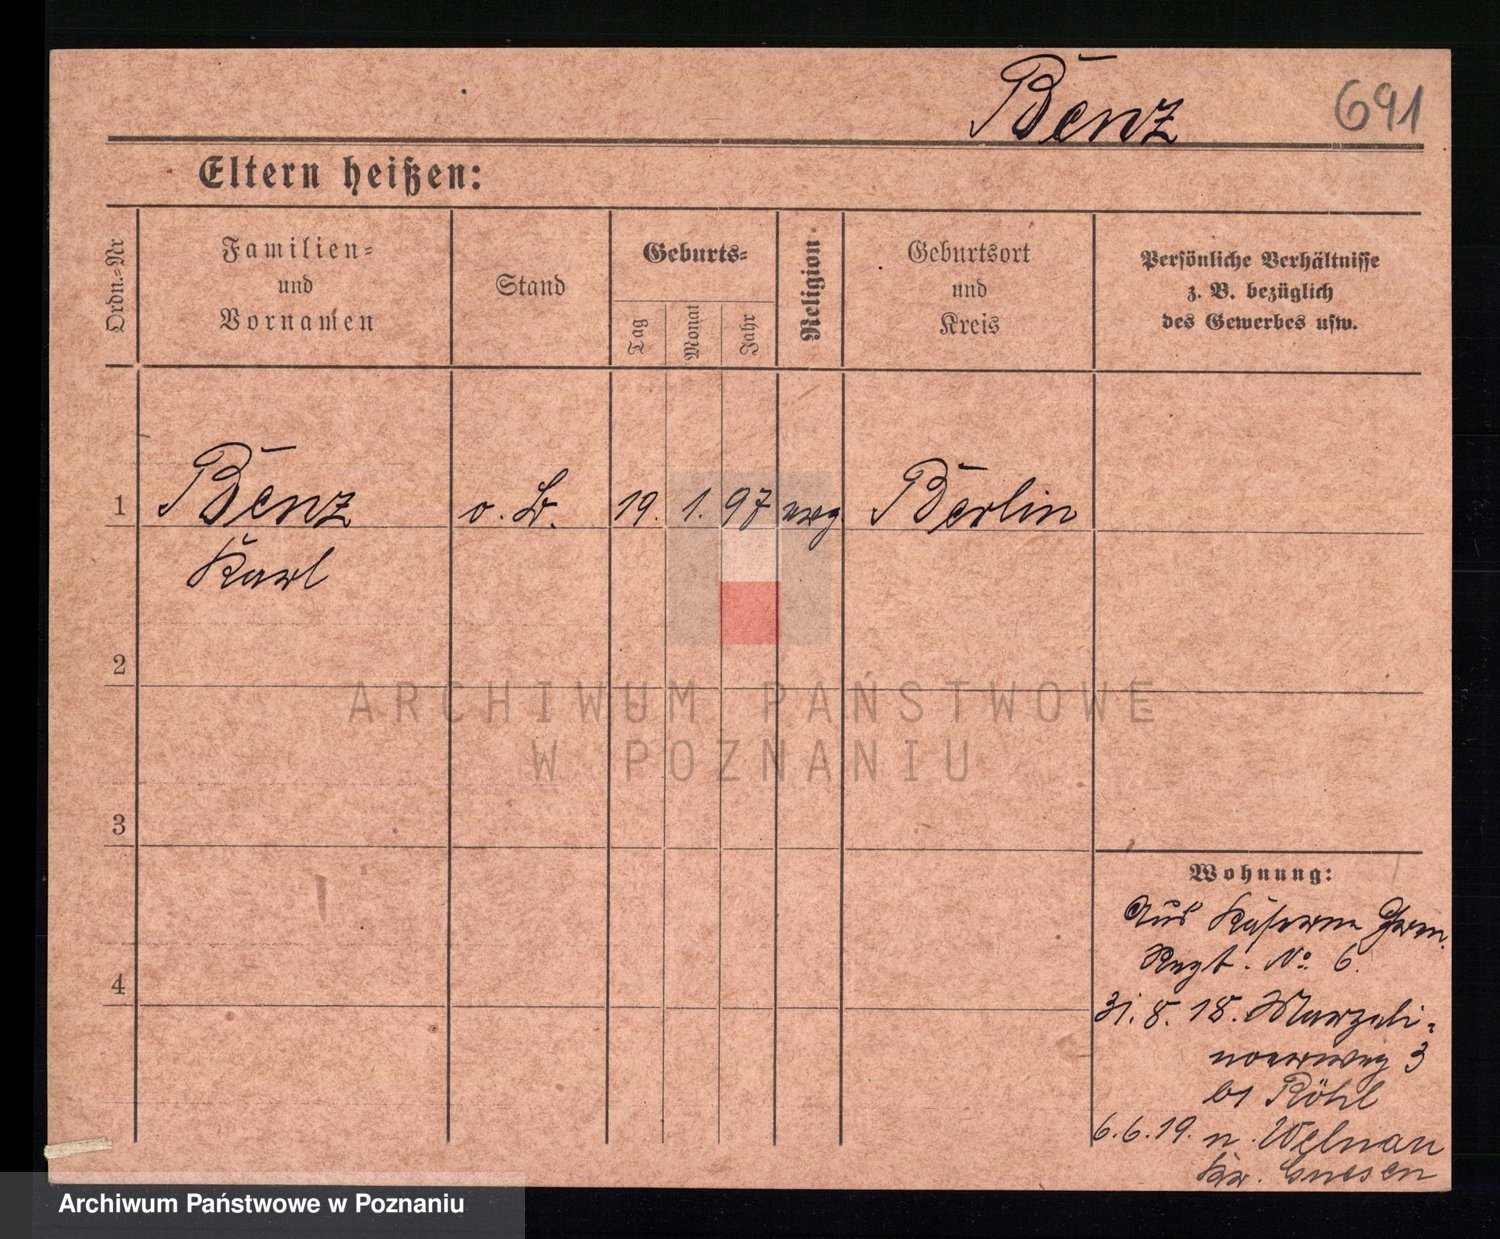 Benz 691
Eltern heißen:
Ordn.=Nr
Familien=
und
Vornamen
Stand
Geburts=
Tag
Monat
Jahr
Religion
Geburtsort
und
Kreis
Persönliche Verhältnisse
z. B. bezüglich
des Gewerbes usw.
1 Benz o. B. 19. 1. 97 evg Berlin
Karl
2
3
4
Wohnung:
Aus Kaserne Gren.
Regt. No. 6.
31. 8. 18.
3
Röhl
6.6.19. n. Welnau
Kr. Gnesen
ARCHIWUM PAŃSTWOWE
W POZNANIU
Archiwum Państwowe w Poznaniu